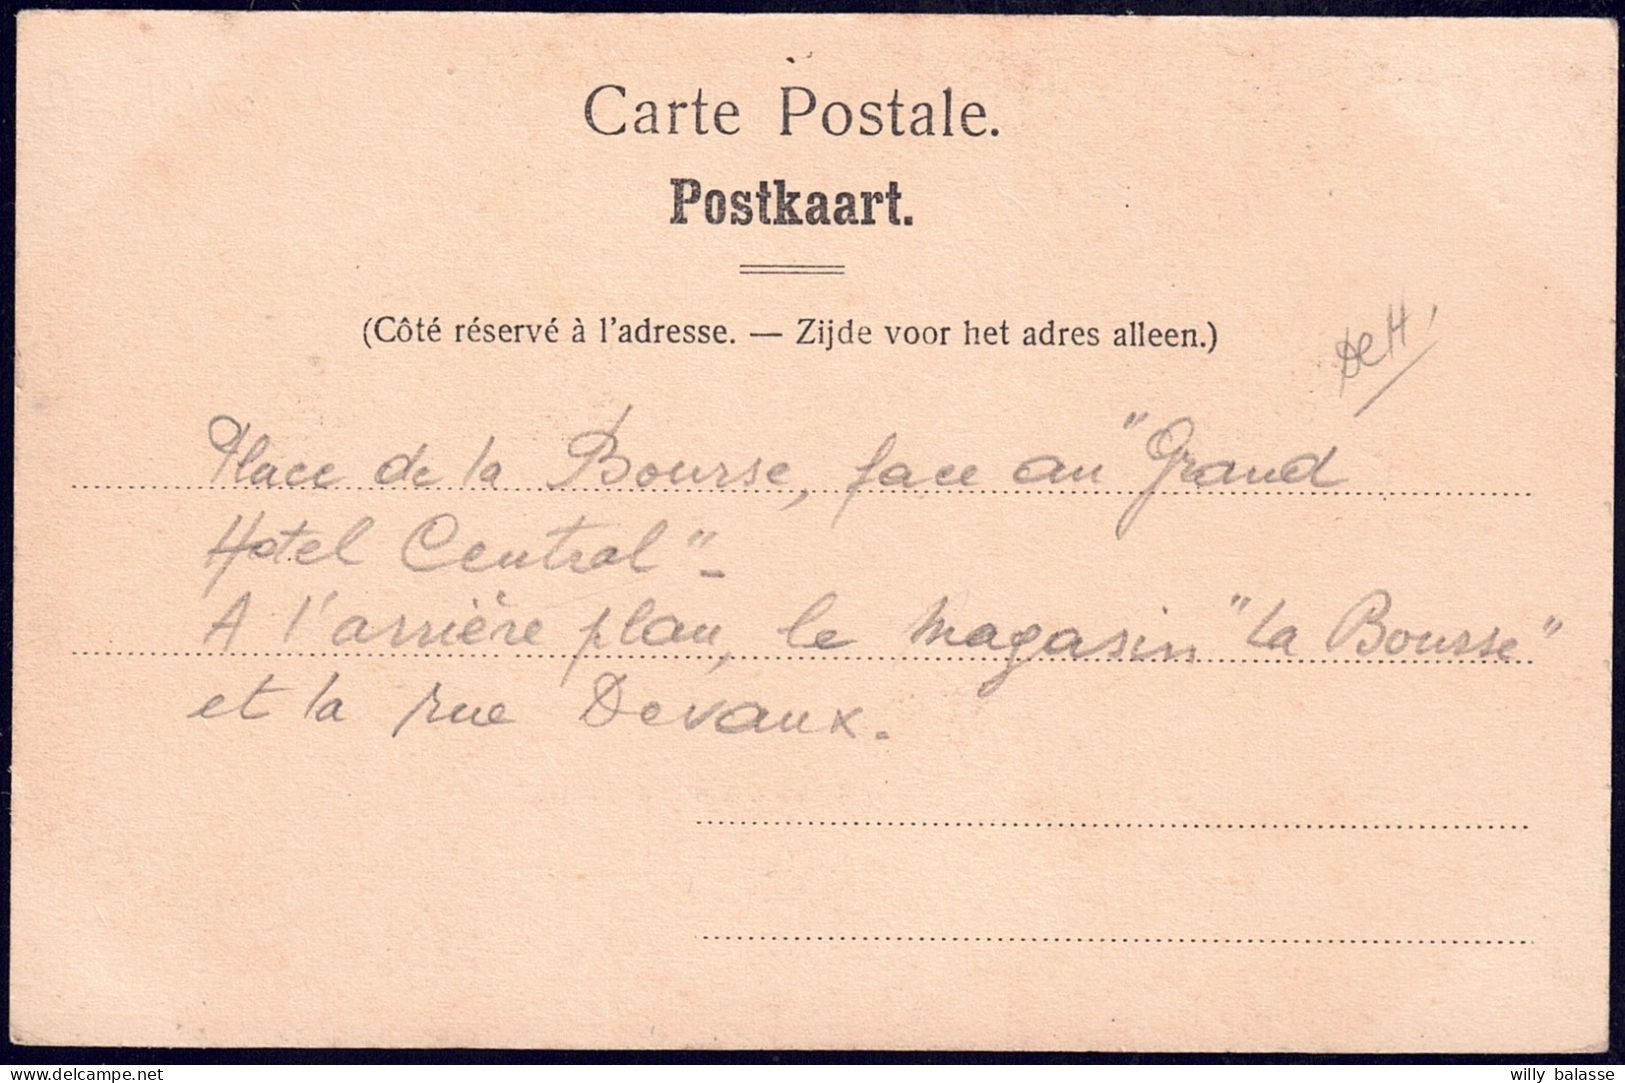 Carte Postale.
Postkaart.
(Côté réservé à l'adresse. — Zijde voor het adres alleen.)
DeH
Place de la Bourse, face au "Grand
Hotel Central" -
A l'arrière plan, le magasin "la Bourse"
et la rue Devaux.
delcampe.net
willy balasse